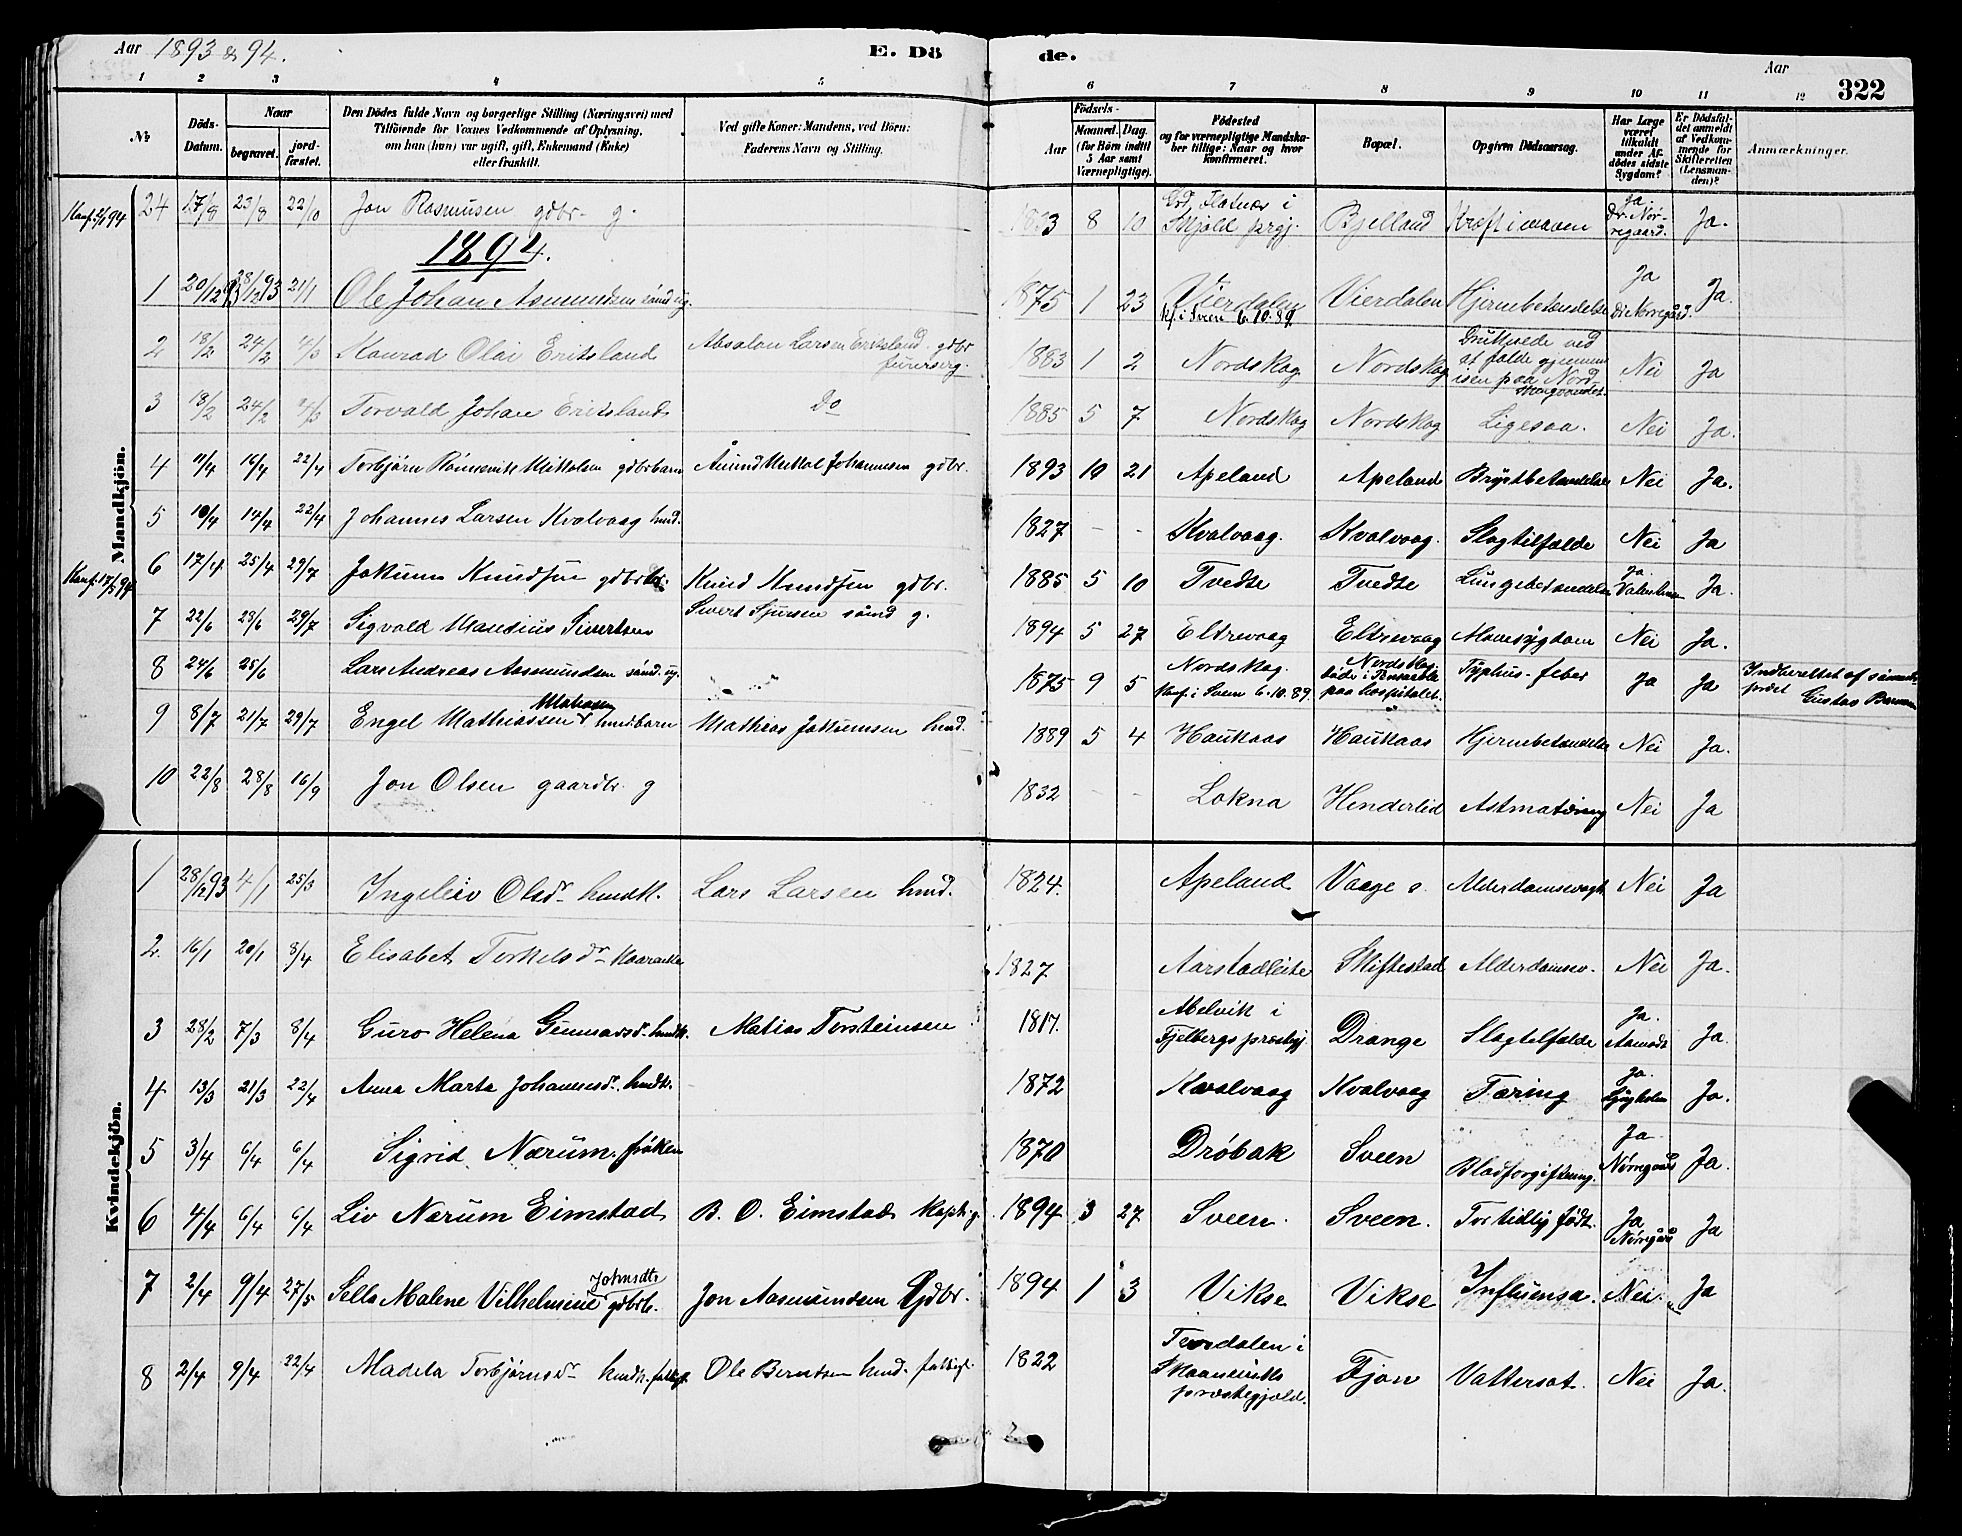 Aar 1893 & 94. E. Dö de. Aar 322
1 2 3 4 5 6 7 8 9 10 11 12
№ Döds-Datum. Naar begravet. jordfæstet. Den Dödes fulde Navn og borgerlige Stilling (Næringsvei) med Tilföiende for Voxnes Vedkommende af Oplysning, om han (hun) var ugift, gift, Enkemand (Enke) eller fraskilt. Ved gifte Koner: Mandens, ved Börn: Faderens Navn og Stilling. Aar Födsels- Maaned. Dag. (for Börn indtil 5 Aar samt Værnepligtige). Födested og for værnepligtige Mandskaber tillige: Naar og hvor konfirmeret. Bopæl. Opgiven Dödsaarsag. Har Læge været tilkaldt under Afdödes sidste Sygdom? Er Dödsfaldet anmeldt af Vedkommende for Skifteretten (Lensmanden)? Anmærkninger.
Mandkjön.
24 17/8 23/8 22/10 Jon Rasmussen gdbr. g. 8 10 Skjold prgj. Bjelland Kræft i maven Ja Dr. Norregaard. Ja.
1894.
1 20/12 28/12 93 21/1 Ole Johan Asmundsen sömd ug. 1875 1 23 Vierdalen kf. i Sveen 6.10.89. Vierdalen Hjernebetændelse Ja Dr Nörregård. Ja.
2 18/2 24/2 4/3 Konrad Olai Eriksland Absalon Larsen Eriksland gdbr 1883 1 2 Nordskog Nordskog Druknede ved at falde gjennem isen paa Nordskogvandet. Nei Ja
3 18/2 24/2 4/3 Torvald Johan Eriksland Do 1885 5 7 Nordskog Nordskog Ligesaa. Nei Ja.
4 11/4 16/4 22/4 Torbjørn Mikkelsen gdbrbarn Johannesen gdbr. 1893 10 21 Apeland Apeland Brystbetændelse Nei Ja.
5 10/4 14/4 22/4 Johannes Larsen Kvalvaag hmd. 1827 - - Kvalvaag. Kvalvaag. Slagtilfælde Nei Ja
Kanf. 17/5 94 6 17/4 25/4 29/7 Jokum Knudsen Knud Knudsen gdbr. 1885 5 10 Tvedte Tvedte Lungebetændelse Ja. Valentinsen Ja.
7 22/6 28/6 29/7 Sigvald Mandius Sivertsen Sivert Sjursen sömd g. 1894 5 27 Eltrevaag Eltrevaag Mavesygdom Nei Ja.
8 24/6 25/6 Lars Andreas Aasmundsen sömd. ug. 1875 9 5 Nordskog. Kanf. i Sveen 6.10.89. Nordskog. paa hospitalet. Typhus-feber Ja Ja Indberettet af sömandspræst Gustav
9 8/7 21/7 29/7 Engel Mathiassen hmdbarn Mathias Jokumsen hmd. 1889 5 4 Haukaas Haukaas Hjernebetændelse Nei Ja.
10 22/8 28/8 16/9 Jon Olsen gaardbr. g 1832 - - Lokna Henderlid Nei Ja
Kvindekjön.
1 28/12 93 4/1 25/3 Ingeleiv Olsdr hmdk. Lars Larsen hmd. 1824. Apeland Vaage s. Alderdomssvagh. Nei Ja
2. 16/1 20/1 8/4 Elisabet Torkelsdr 1827 Aarstadleite Skiftestad Alderdomssv. Nei Ja.
3 28/2 7/3 8/4 Guro Helena Gunnarsdr. hmdk. Matias Torsteinsen 1817. Abelvik i Fjelbergs præstgj. Drange Slagtilfælde Ja. Aamodt Ja.
4 13/3 21/3 22/4 Anna Marta Johannesdr. hmdk. 1872 Kvalvaag Kvalvaag Tæring Ja. Ja.
5 3/4 6/4 6/4 Sigrid Nærum. fröken 1870 Dröbak Sveen Blodforgiftning. Ja Nörregård Ja.
6 4/4 6/4 6/4 Liv Nærum Eimstad B. O. Eimstad kapt. g. 1894 3 27 Sveen. Sveen. For tidlig födt. Ja Nörregård Ja
7 2/4 9/4 27/5 Sella Malene Vilhelmine Johnsdtr gdbrb. Jon Aasmundsen Gdbr. 1894 1 3 Vikse Vikse Influensa. Nei. Ja
8 2/4 9/4 22/4 Madela Torbjørnsdr hmdk. fattigf. Ole Berntsen hmd. fattigf. 1822 præstegjæld. Fjon Vattersot. Nei Ja.